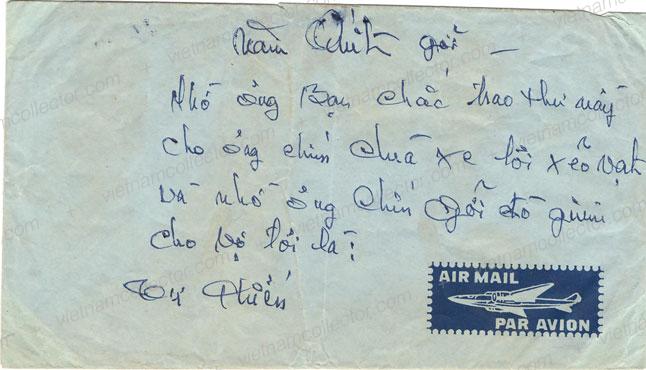 Năm Chính gởi _
Nhờ ông Bạn chắc trao thư này
cho ông chín chuâ xe lôi xẻo vạt
và nhờ ông Chín gởi đồ giùm
cho vợ tôi là:
Tư Thiền
AIR MAIL
PAR AVION
vietnamcollector.com